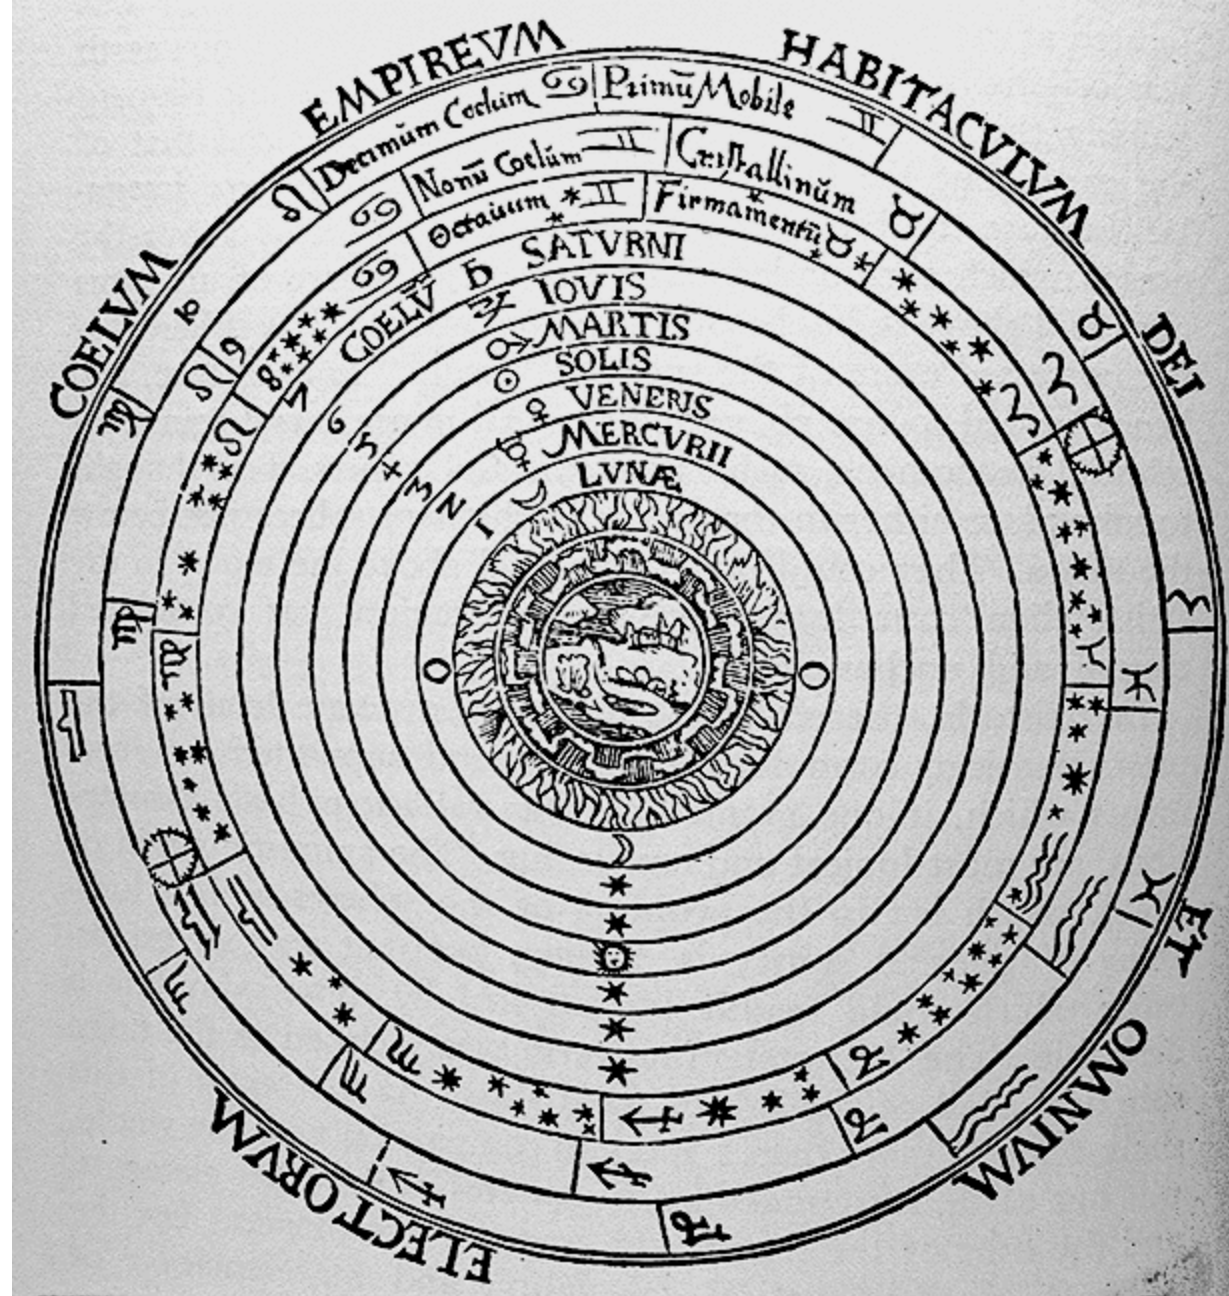 COELVM EMPIREVM HABITACVLVM DEI ET OMNIVM ELECTORVM
Decimũm Coelum ♋ Primũ Mobile ♊
Nonũ Coelũm ♊ Cristallinũm ♉
Octauum ♊ Firmamentũ ♉
COELV̄ ♄ SATVRNI
♃ IOVIS
♂ MARTIS
☉ SOLIS
♀ VENERIS
☿ MERCVRII
☽ LVNÆ
10
9
8
7
6
5
4
3
2
1